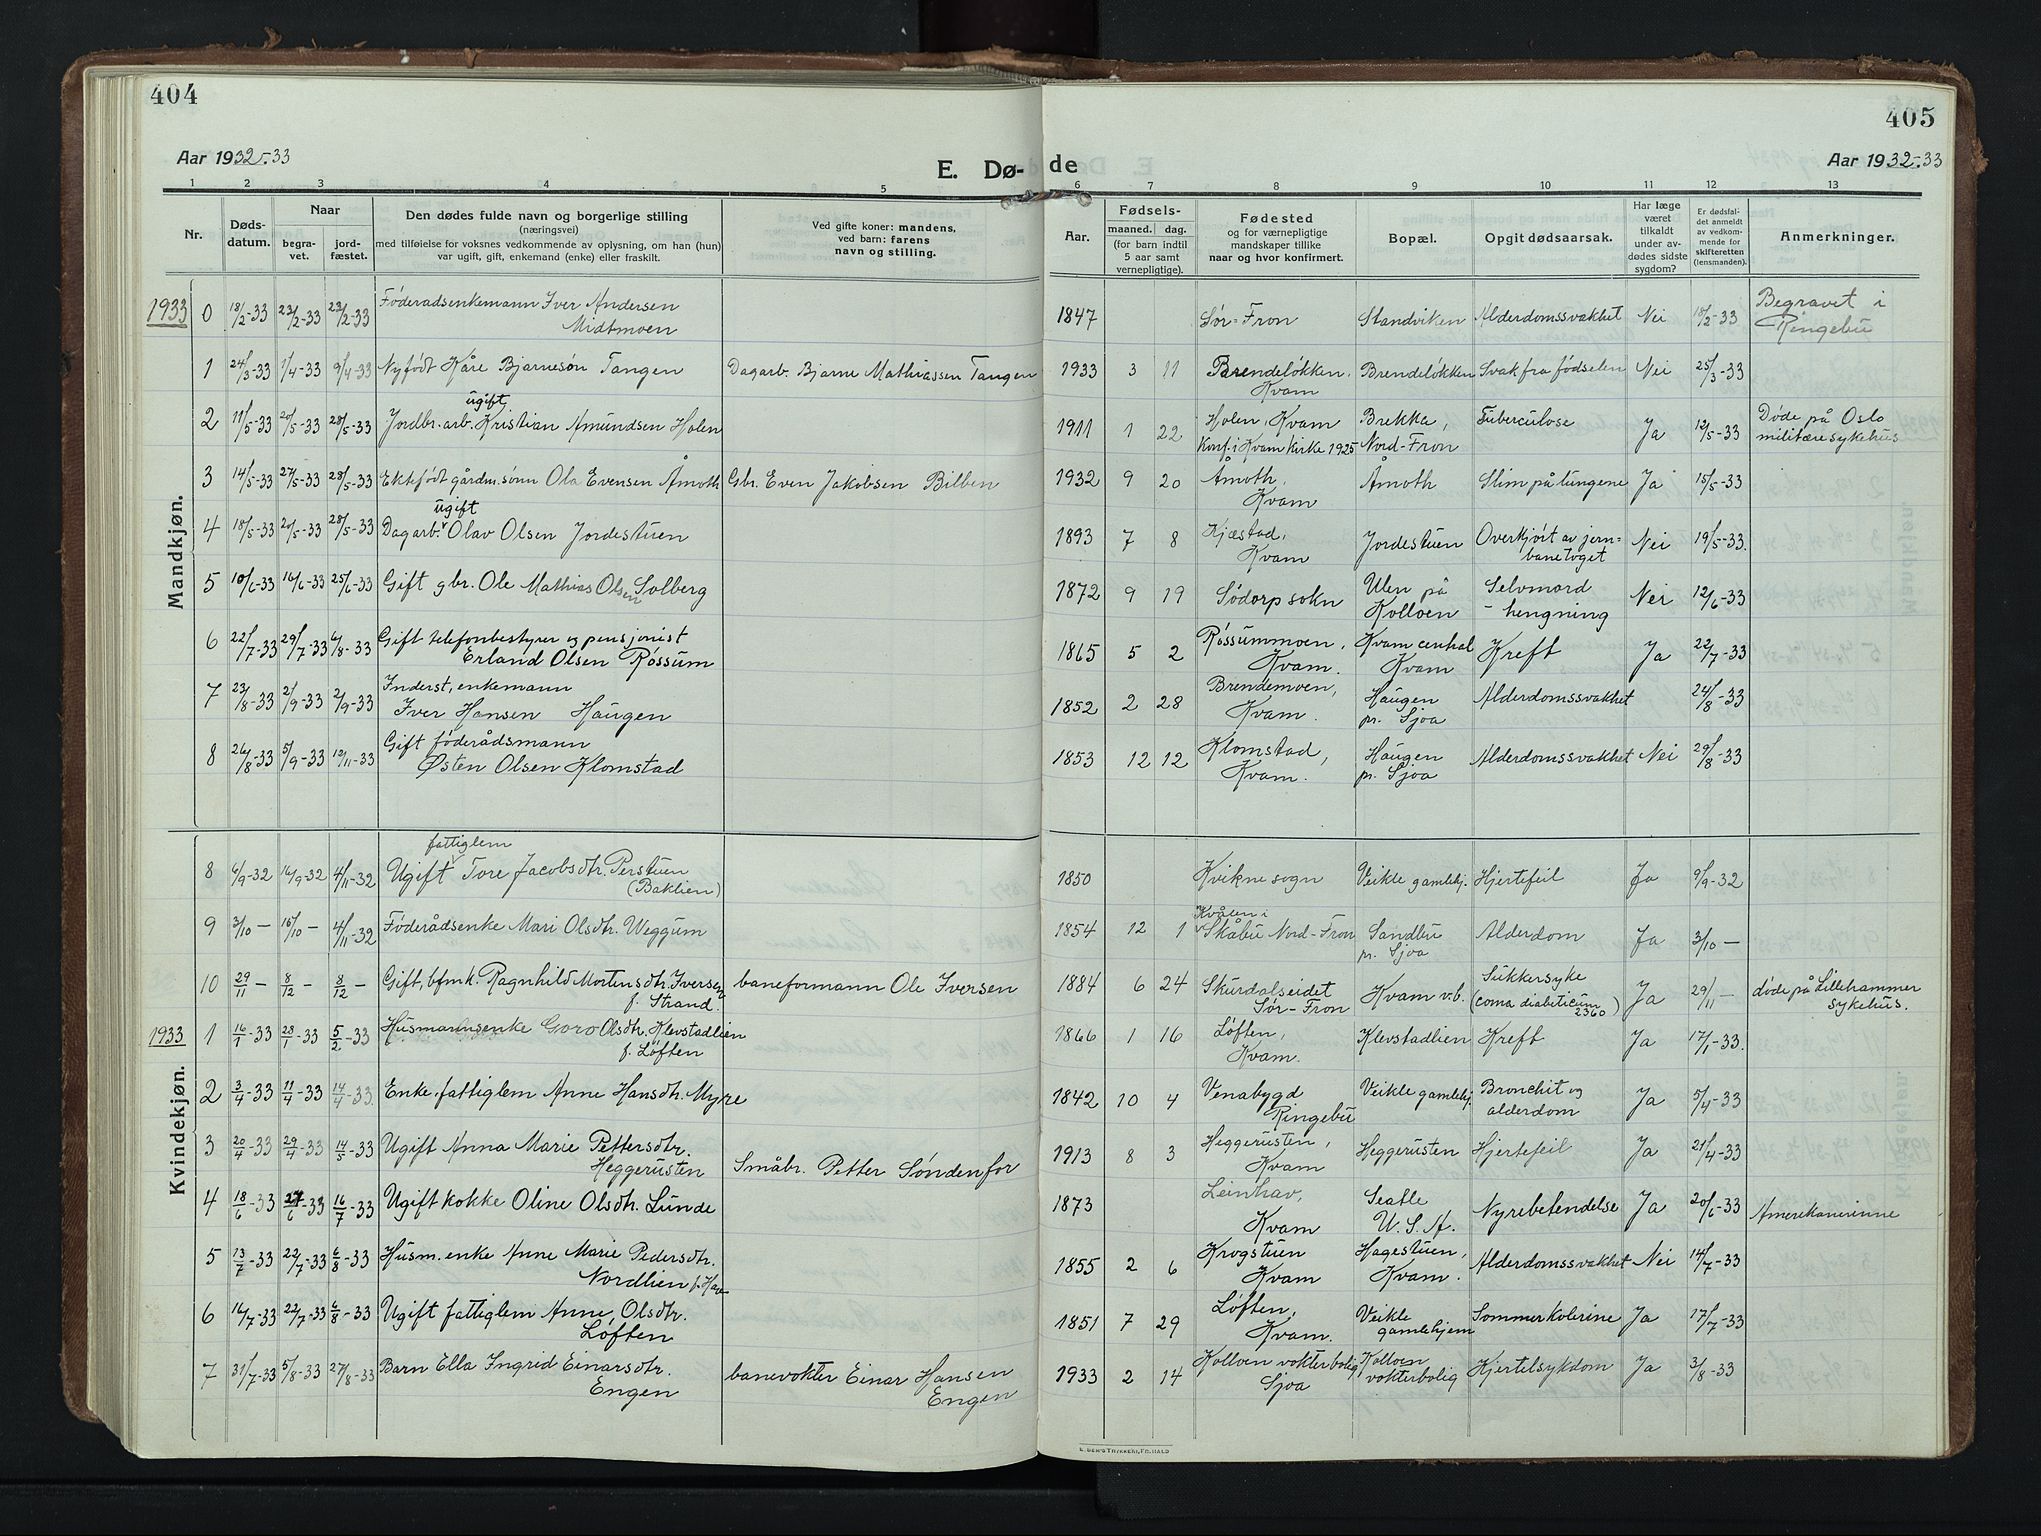 404
405
Aar 1932-33
E. Dø-
de
Aar 1932-33
1 2 3 4 5 6 7 8 9 10 11 12 13
Nr.
Døds-
datum.
Naar
begra-
vet.
jord-
fæstet.
Den dødes fulde navn og borgerlige stilling
(næringsvei)
med tilføielse for voksnes vedkommende av oplysning, om han (hun)
var ugift, gift, enkemand (enke) eller fraskilt.
Ved gifte koner: mandens,
ved barn: farens
navn og stilling.
Aar.
Fødsels-
maaned. dag.
(for barn indtil
5 aar samt
vernepligtige).
Fødested
og for værnepligtige
mandskaper tillike
naar og hvor konfirmert.
Bopæl.
Opgit dødsaarsak.
Har læge
været
tilkaldt
under av-
dødes sidste
sygdom?
Er dødsfal-
det anmeldt
av vedkom-
mende for
skifteretten
(lensmanden).
Anmerkninger.
Mandkjøn.
1933 0 18/2-33 23/2-33 23/2-33 Føderådsenkemann Iver Andersen
Midtmoen
1847 Sør-Fron Standviken Alderdomssvakhet Nei 18/2-33 Begravet i
Ringebu
1 24/3-33 1/4-33 9/4-33 Nyfødt Kåre Bjarnesøn Tangen Dagarb. Bjarne Mathiassen Tangen 1933 3 11 Brendeløkken, Brendeløkken Svak fra fødselen Nei 25/3-33
Kvam
ugift
2 11/5-33 20/5-33 28/5-33 Jordbr.arb. Kristian Amundsen Holen 1911 1 22 Holen, Kvam Brekka, Tuberculose Ja 12/5-33 Døde på Oslo
Konf. i Kvam kirke 1925 Nord-Fron militære sykehus
3 14/5-33 27/5-33 28/5-33 Ektefødt gårdm.sønn Ola Evensen Åmoth Gbr. Even Jakobsen Bilben 1932 9 20 Åmoth, Åmoth Slim på lungene Ja 15/5-33
Kvam
ugift
4 18/5-33 20/5-33 28/5-33 Dagarb. Olav Olsen Jordestuen 1893 7 8 Kjæstad, Jordestuen Overkjørt av jern- Nei 19/5-33.
Kvam banetoget
5 10/6-33 16/6-33 25/6-33 Gift gbr. Ole Mathias Olsen Solberg 1872 9 19 Sødorp sokn Ulen på Selvmord Nei 12/6-33
Kolloen - hengning
6 22/7-33 29/7-33 6/8-33 Gift telefonbestyrer og pensjonist
Erland Olsen Røssum
1865 5 2 Røssummoen, Kvam central Kreft Ja 22/7-33
Kvam. Kvam
7 23/8-33 2/9-33 2/9-33 Inderst, enkemann
Iver Hansen Haugen
1852 2 28 Brendemoen, Haugen Alderdomssvakhet 24/8-33
Kvam. pr. Sjoa
8 26/8-33 5/9-33 12/11-33 Gift føderådsmann
Østen Olsen Klomstad
1853 12 12 Klomstad, Haugen Alderdomssvakhet Nei 29/8-33
Kvam. pr. Sjoa
Kvindekjøn.
fattiglem
8 6/9-32 16/9-32 4/11-32 Ugift Tore Jacobsdtr. Perstuen
(Baklien)
1850 Kvikne sogn Veikle gamlehj. Hjertefeil Ja 9/9-32
9 3/10 - 16/10 - 4/11-32 Føderådsenke Mari Olsdtr. Weggum 1854 12 1 Kvålen i
Skåbu Nord-Fron Sandbu Alderdom Ja 3/10 -
pr. Sjoa
10 29/11 - 8/12 - 8/12 - Gift, bfmk. Ragnhild Mortensdtr. Iversen baneformann Ole Iversen 1884 6 24 Skurdalseidet Kvam v.b. Sukkersyke Ja 29/11 - døde på Lillehammer
f. Strand. Sør-Fron (coma diabeticum sykehus.
2360)
1933 1 16/1-33 28/1-33 5/2-33 Husmannsenke Goro Olsdtr. Klevstadlien
f. Løften
1866 1 16 Løften, Klevstadlien Kreft Ja 17/1-33.
Kvam.
2 3/4-33 11/4-33 14/4-33. Enke, fattiglem Anne Hansdtr. Myre 1842 10 4 Venabygd Veikle gamlehj. Bronchit og Ja 5/4-33
Ringebu alderdom
3 20/4-33 29/4-33 14/5-33 Ugift Anna Marie Pettersdtr.
Heggerusten Småbr. Petter Søndenfor
1913 8 3 Heggerusten, Heggerusten Hjertefeil Ja 21/4-33
Kvam
4 18/6-33 27/6-33 16/7-33 Ugift kokke Oline Olsdtr. Lunde 1873 Leinhav, Seatle Nyrebetendelse Ja 20/6-33 Amerikanerinne
Kvam U.S.A.
5 13/7-33 22/7-33 6/8-33 Husm.enke Anne Marie Pedersdtr.
Nordlien
1855 2 6 Krogstuen Hagestuen, Alderdomssvakhet Nei 14/7-33
Kvam Kvam.
6 16/7-33 22/7-33 6/8-33 Ugift fattiglem Anne Olsdtr.
Løften
1851 7 29 Løften, Veikle Sommerkolerine Ja 17/7-33
Kvam. gamlehjem
7 31/7-33 5/8-33 27/8-33 Barn Ella Ingrid Einarsdtr.
Engen
banevokter Einar Hansen
Engen
1933 2 14 Kolloen vokterbolig Kolloen Hjertelsykdom Ja 3/8-33
Sjoa vokterbolig